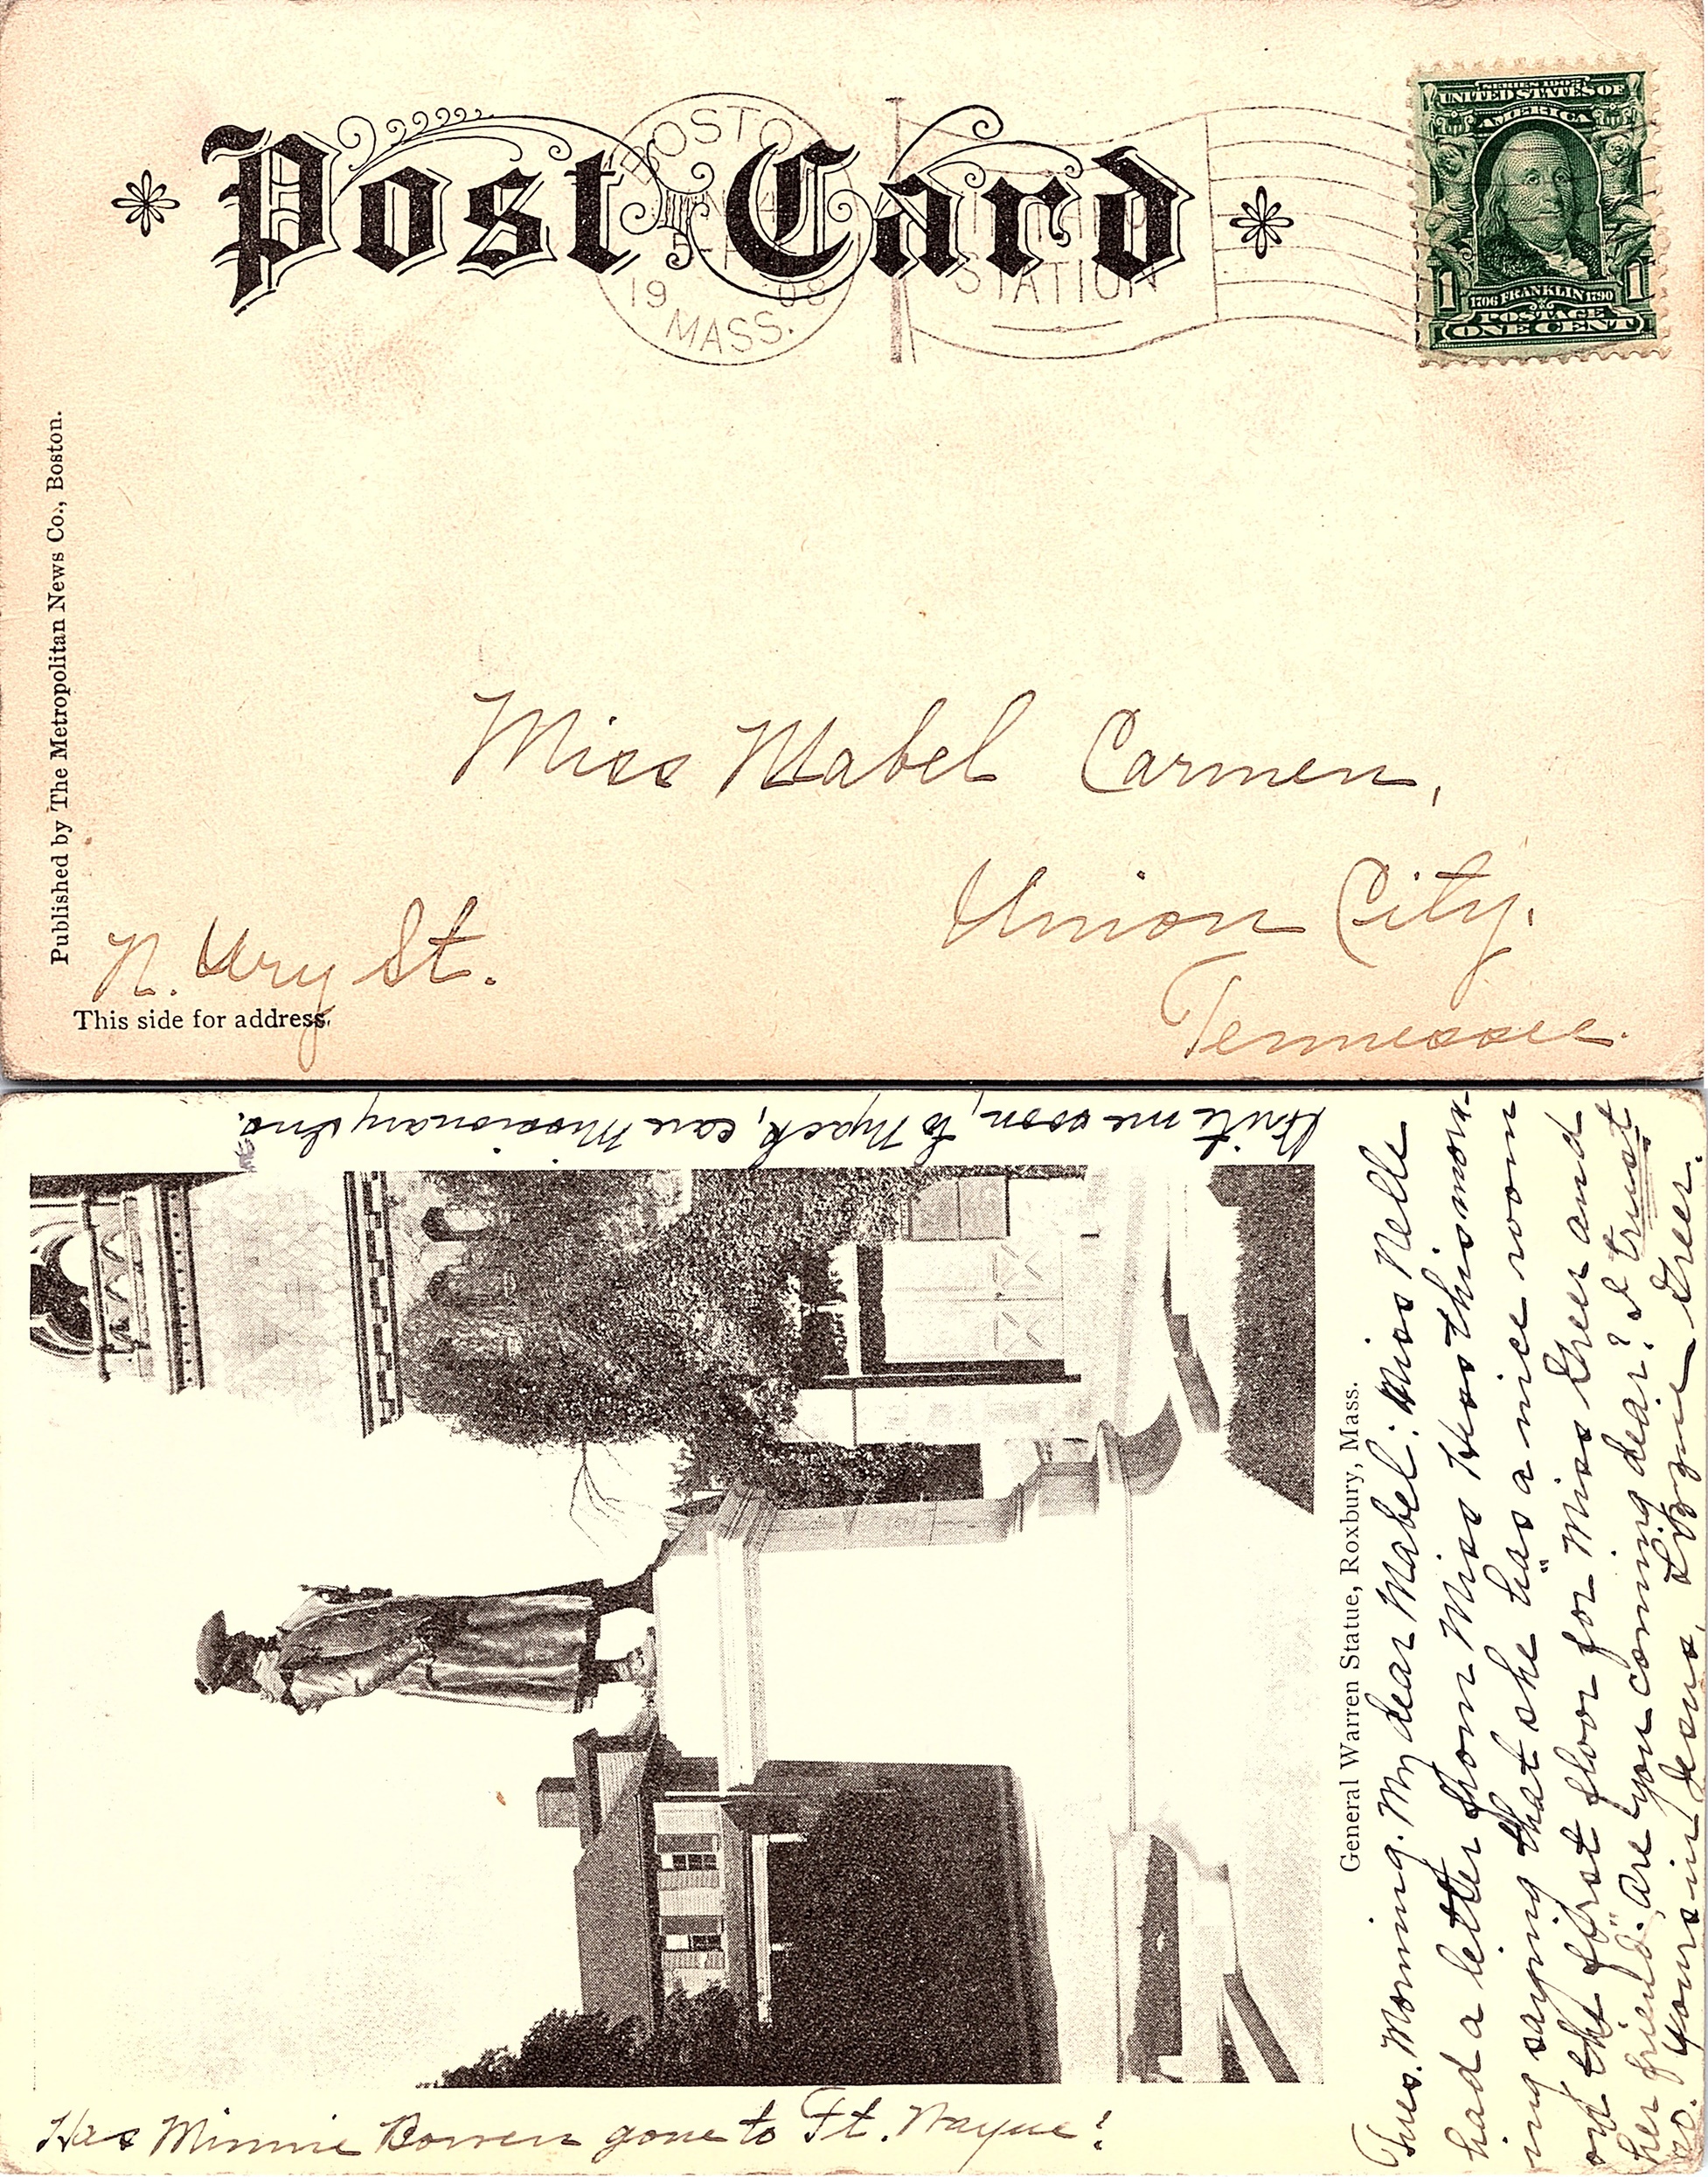 Post Card
BOSTO
19 08
MASS.
STATION
SERIES 1902
UNITED STATES OF
AMERICA
1 1
1706 FRANKLIN 1790
POSTAGE
ONE CENT
Published by The Metropolitan News Co., Boston.
Miss Mabel Carmen,
Union City.
Tennessee.
N. Ury St.
This side for address.
Write me soon, to Nyack, care Missionary Ins.
General Warren Statue, Roxbury, Mass.
Tues. Morning. My dear Mabel: Miss Nelle
had a letter from Miss this morn-
ing saying that she "has a nice room
on the first floor for Miss Greer and
her friend." Are you coming dear? I trust
so. Yours in Jesus, Greer.
Has Minnie Bowen gone to Ft. Wayne?